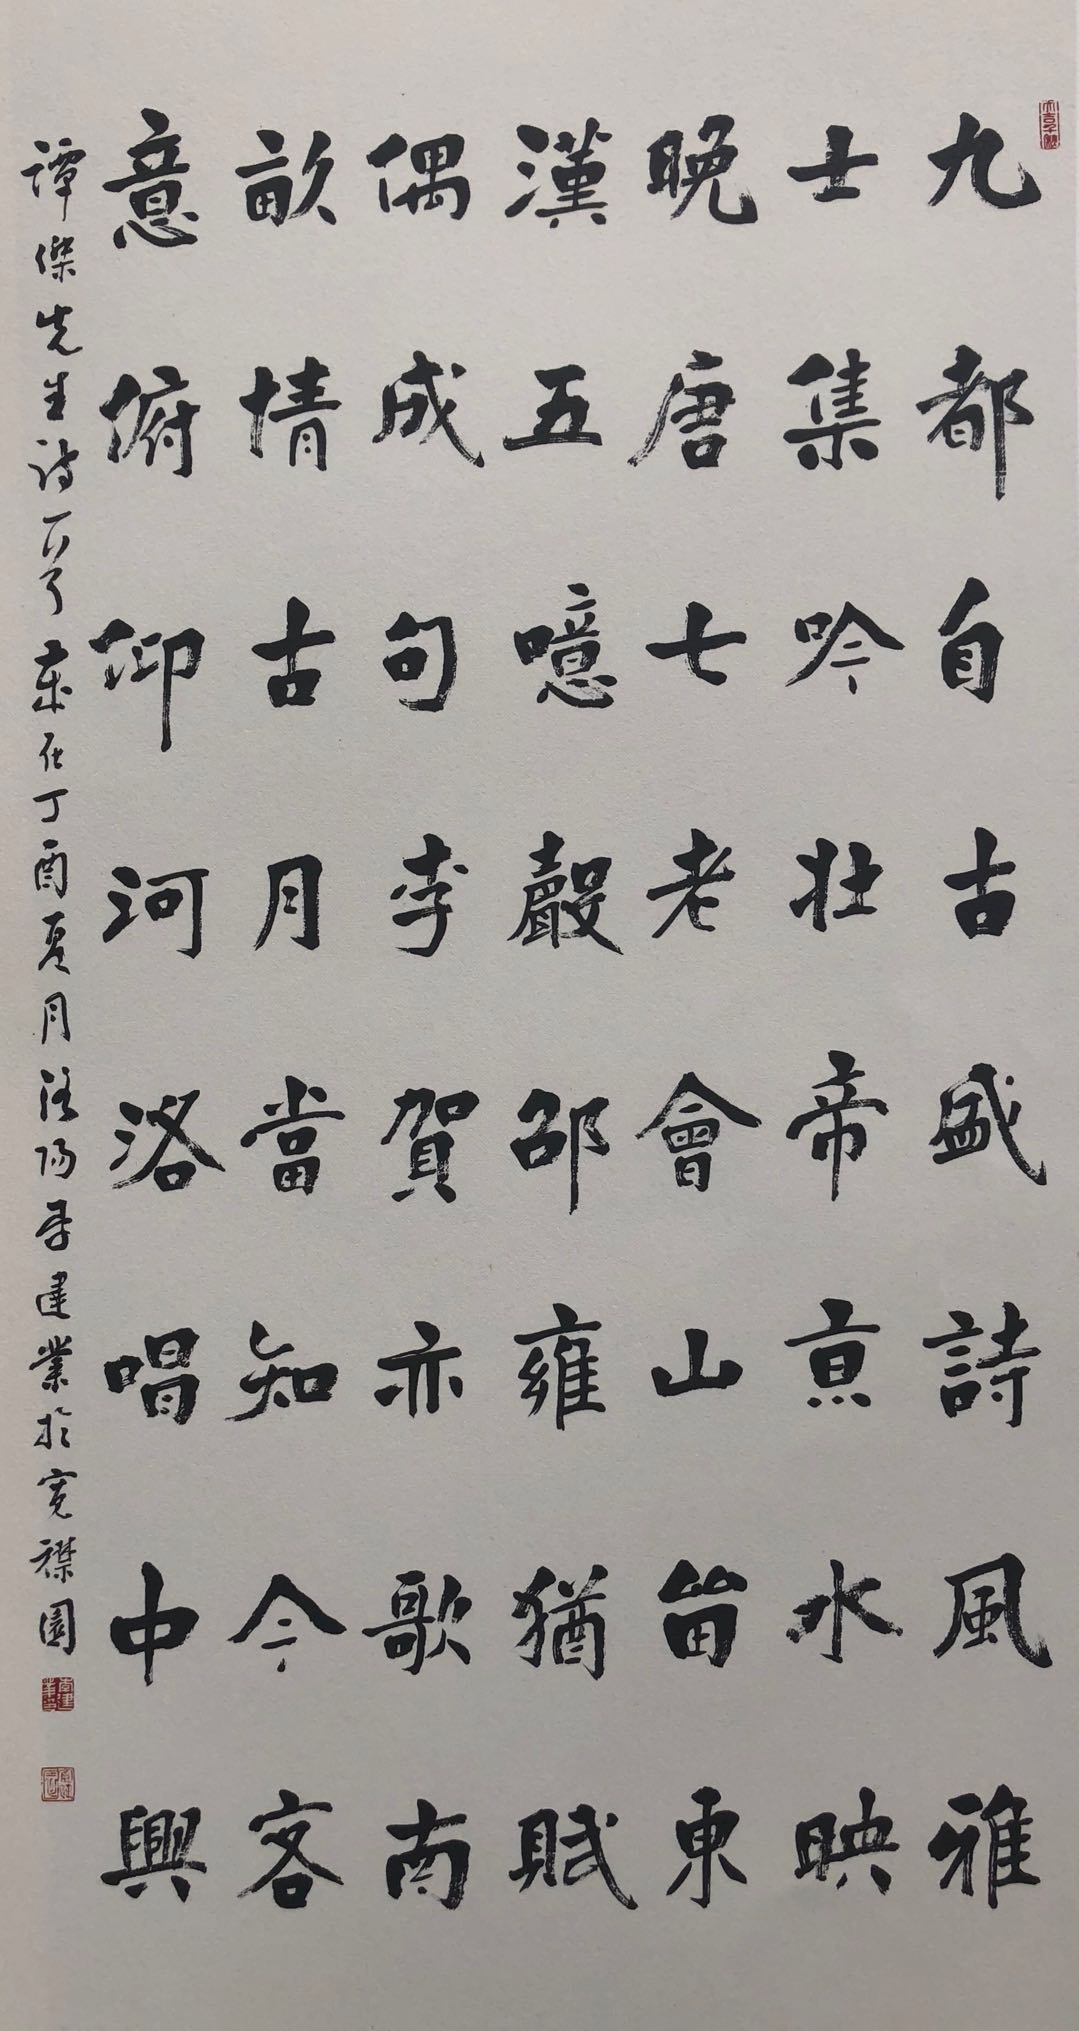 九都自古盛詩風雅
士集吟壮帝亰水映
晚唐七老會山留東
漢五噫聲邵雍猶賦
偶成句李賀亦歌南
畝情古月當知今客
意俯仰河洛唱中興
譚傑先生詩一首歲在丁酉夏月洛陽李建業於寬襟園